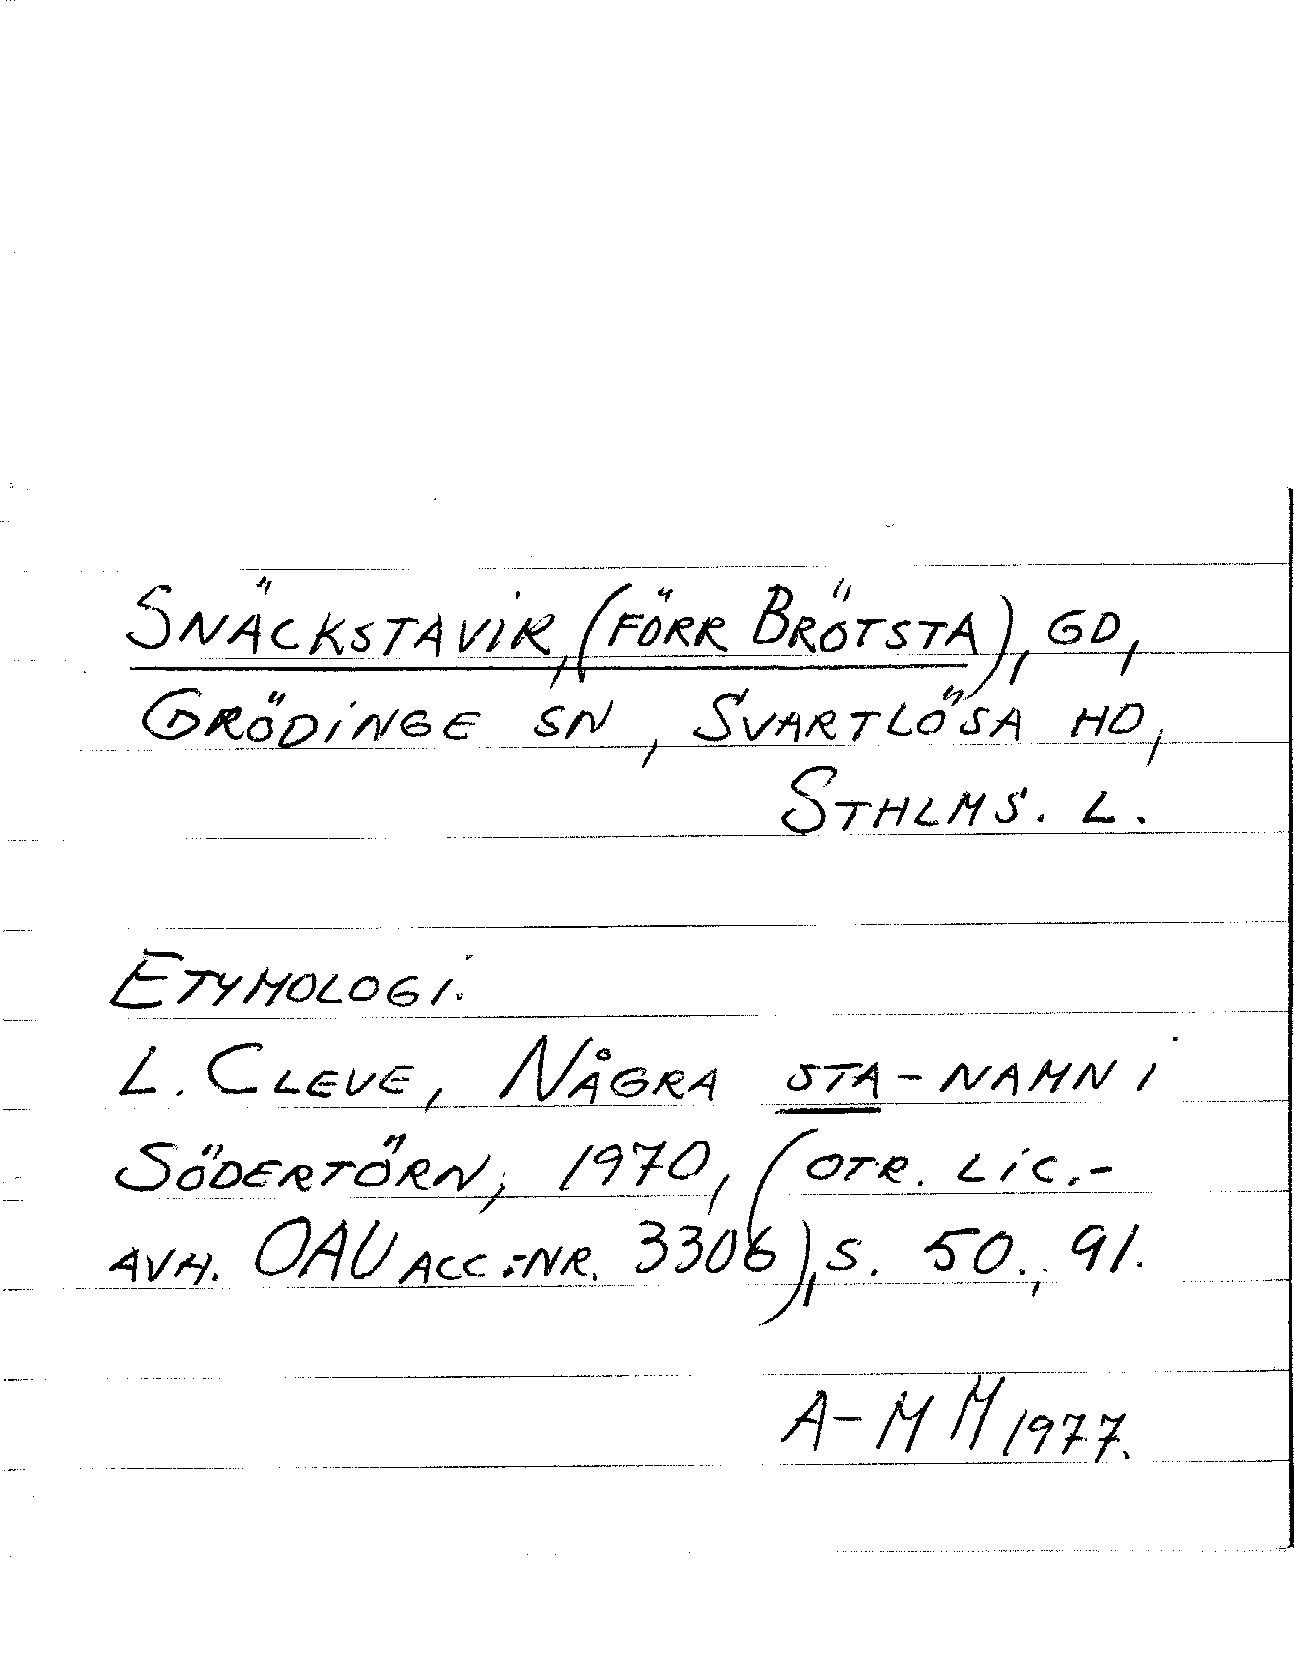 SNÄCKSTAVIK, (FÖRR BRÖTSTA), GD,
GRÖDINGE SN, SVARTLÖSA HD,
STHLMS. L.
ETYMOLOGI.
L. CLEVE, NÅGRA STA-NAMN I
SÖDERTÖRN, 1970, (OTR. LIC.-
AVH. OAU ACC.-NR. 3306), S. 50., 91.
A-M M 1977.